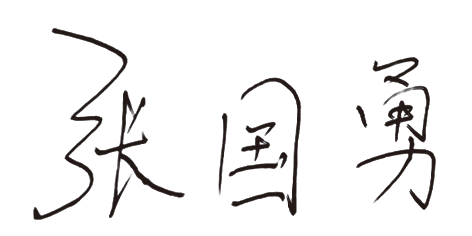 张国勇